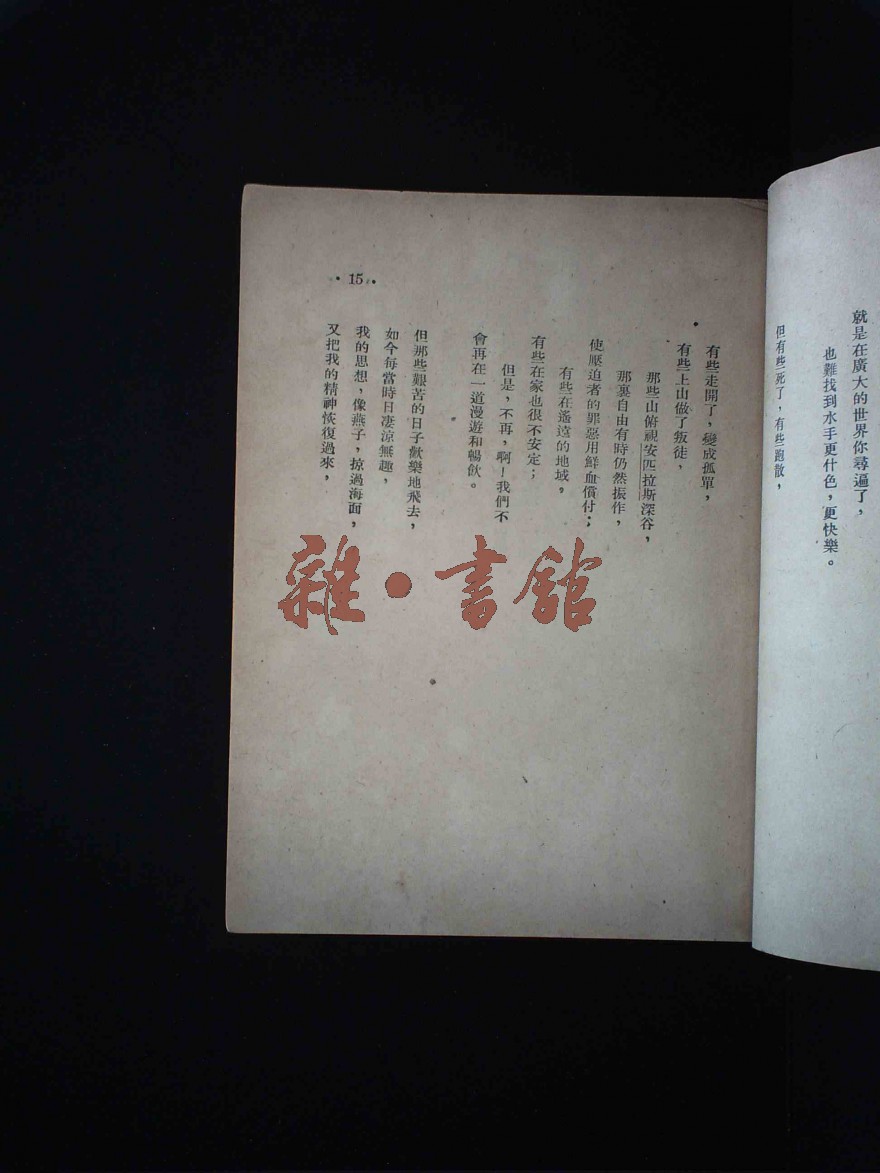 就是在廣大的世界你尋遍了，
也難找到水手更什色，更快樂。
但有些死了，有些跑散，
有些走開了，變成孤單，
有些上山做了叛徒，
那些山俯視安匹拉斯深谷，
那裏自由有時仍然振作，
使壓迫者的罪惡用鮮血償付；
有些在遙遠的地域，
有些在家也很不安定；
但是，不再，啊！我們不
會再在一道漫遊和暢飲。
但那些艱苦的日子歡樂地飛去，
如今每當時日凄涼無趣，
我的思想，像燕子，掠過海面，
又把我的精神恢復過來，
• 15 •
雜•書館